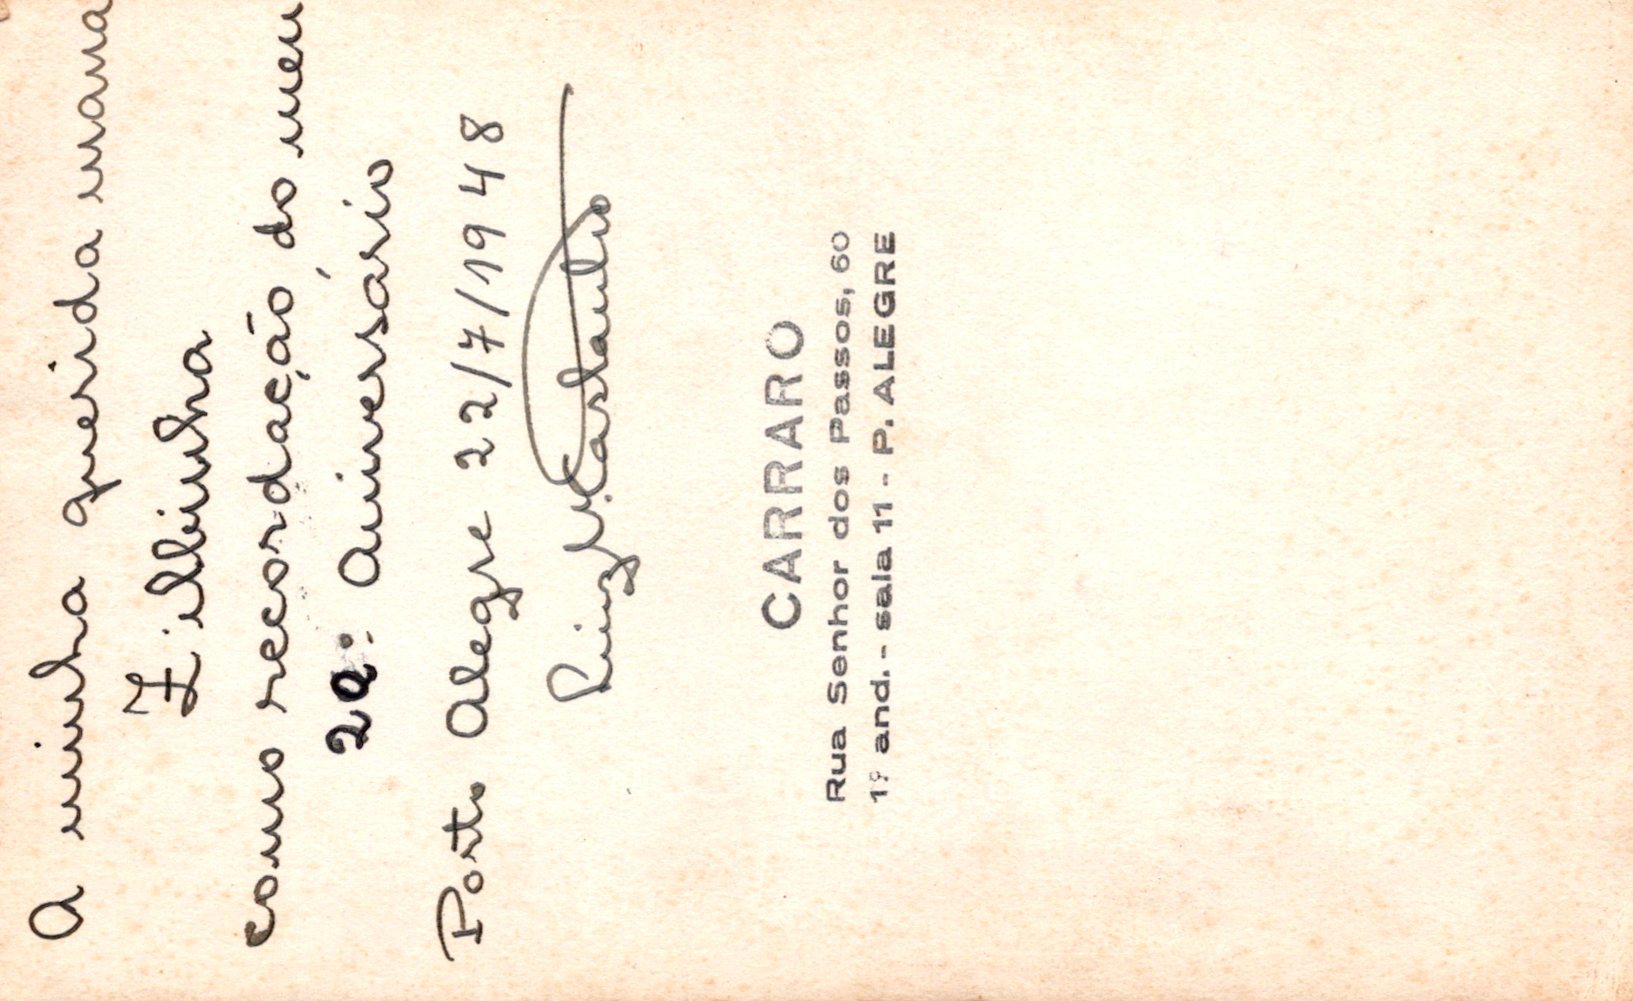 A minha querida mana
Zilbinha
como recordação, do meu
2º: Aniversário
Porto Alegre 22/7/1948
Luiz
CARRARO
Rua Senhor dos Passos, 60
1º and. - sala 11 - P. ALEGRE